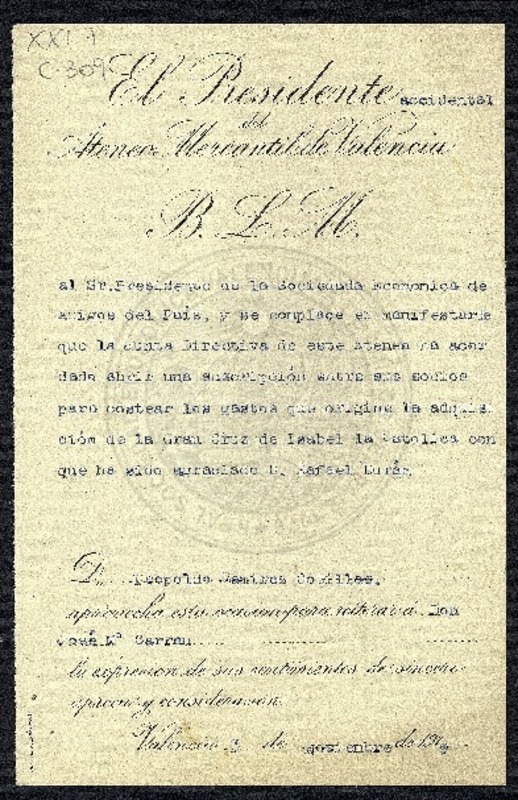 XXI 7
C-309
El Presidente accidental
del
Ateneo Mercantil de Valencia
B. L. M.
al Sr. Presidente de la Sociedada Economica de
Amigos del Pais, y se complace en manifestarle
que la Junta Directiva de este Ateneo ha acor
dado abrir una suscripción entre sus socios
para costear los gastos que origine la adquisi
ción de la Gran Cruz de Isabel la Catolica con
que ha sido agraciado D. Rafael
D. Leopoldo Ramirez
aprovecha esta ocasion para reiterar á Don
José Mª Carrau
la expresion de sus sentimientos de sincero
aprecio y consideración.
Valencia 3 de Noviembre de 19